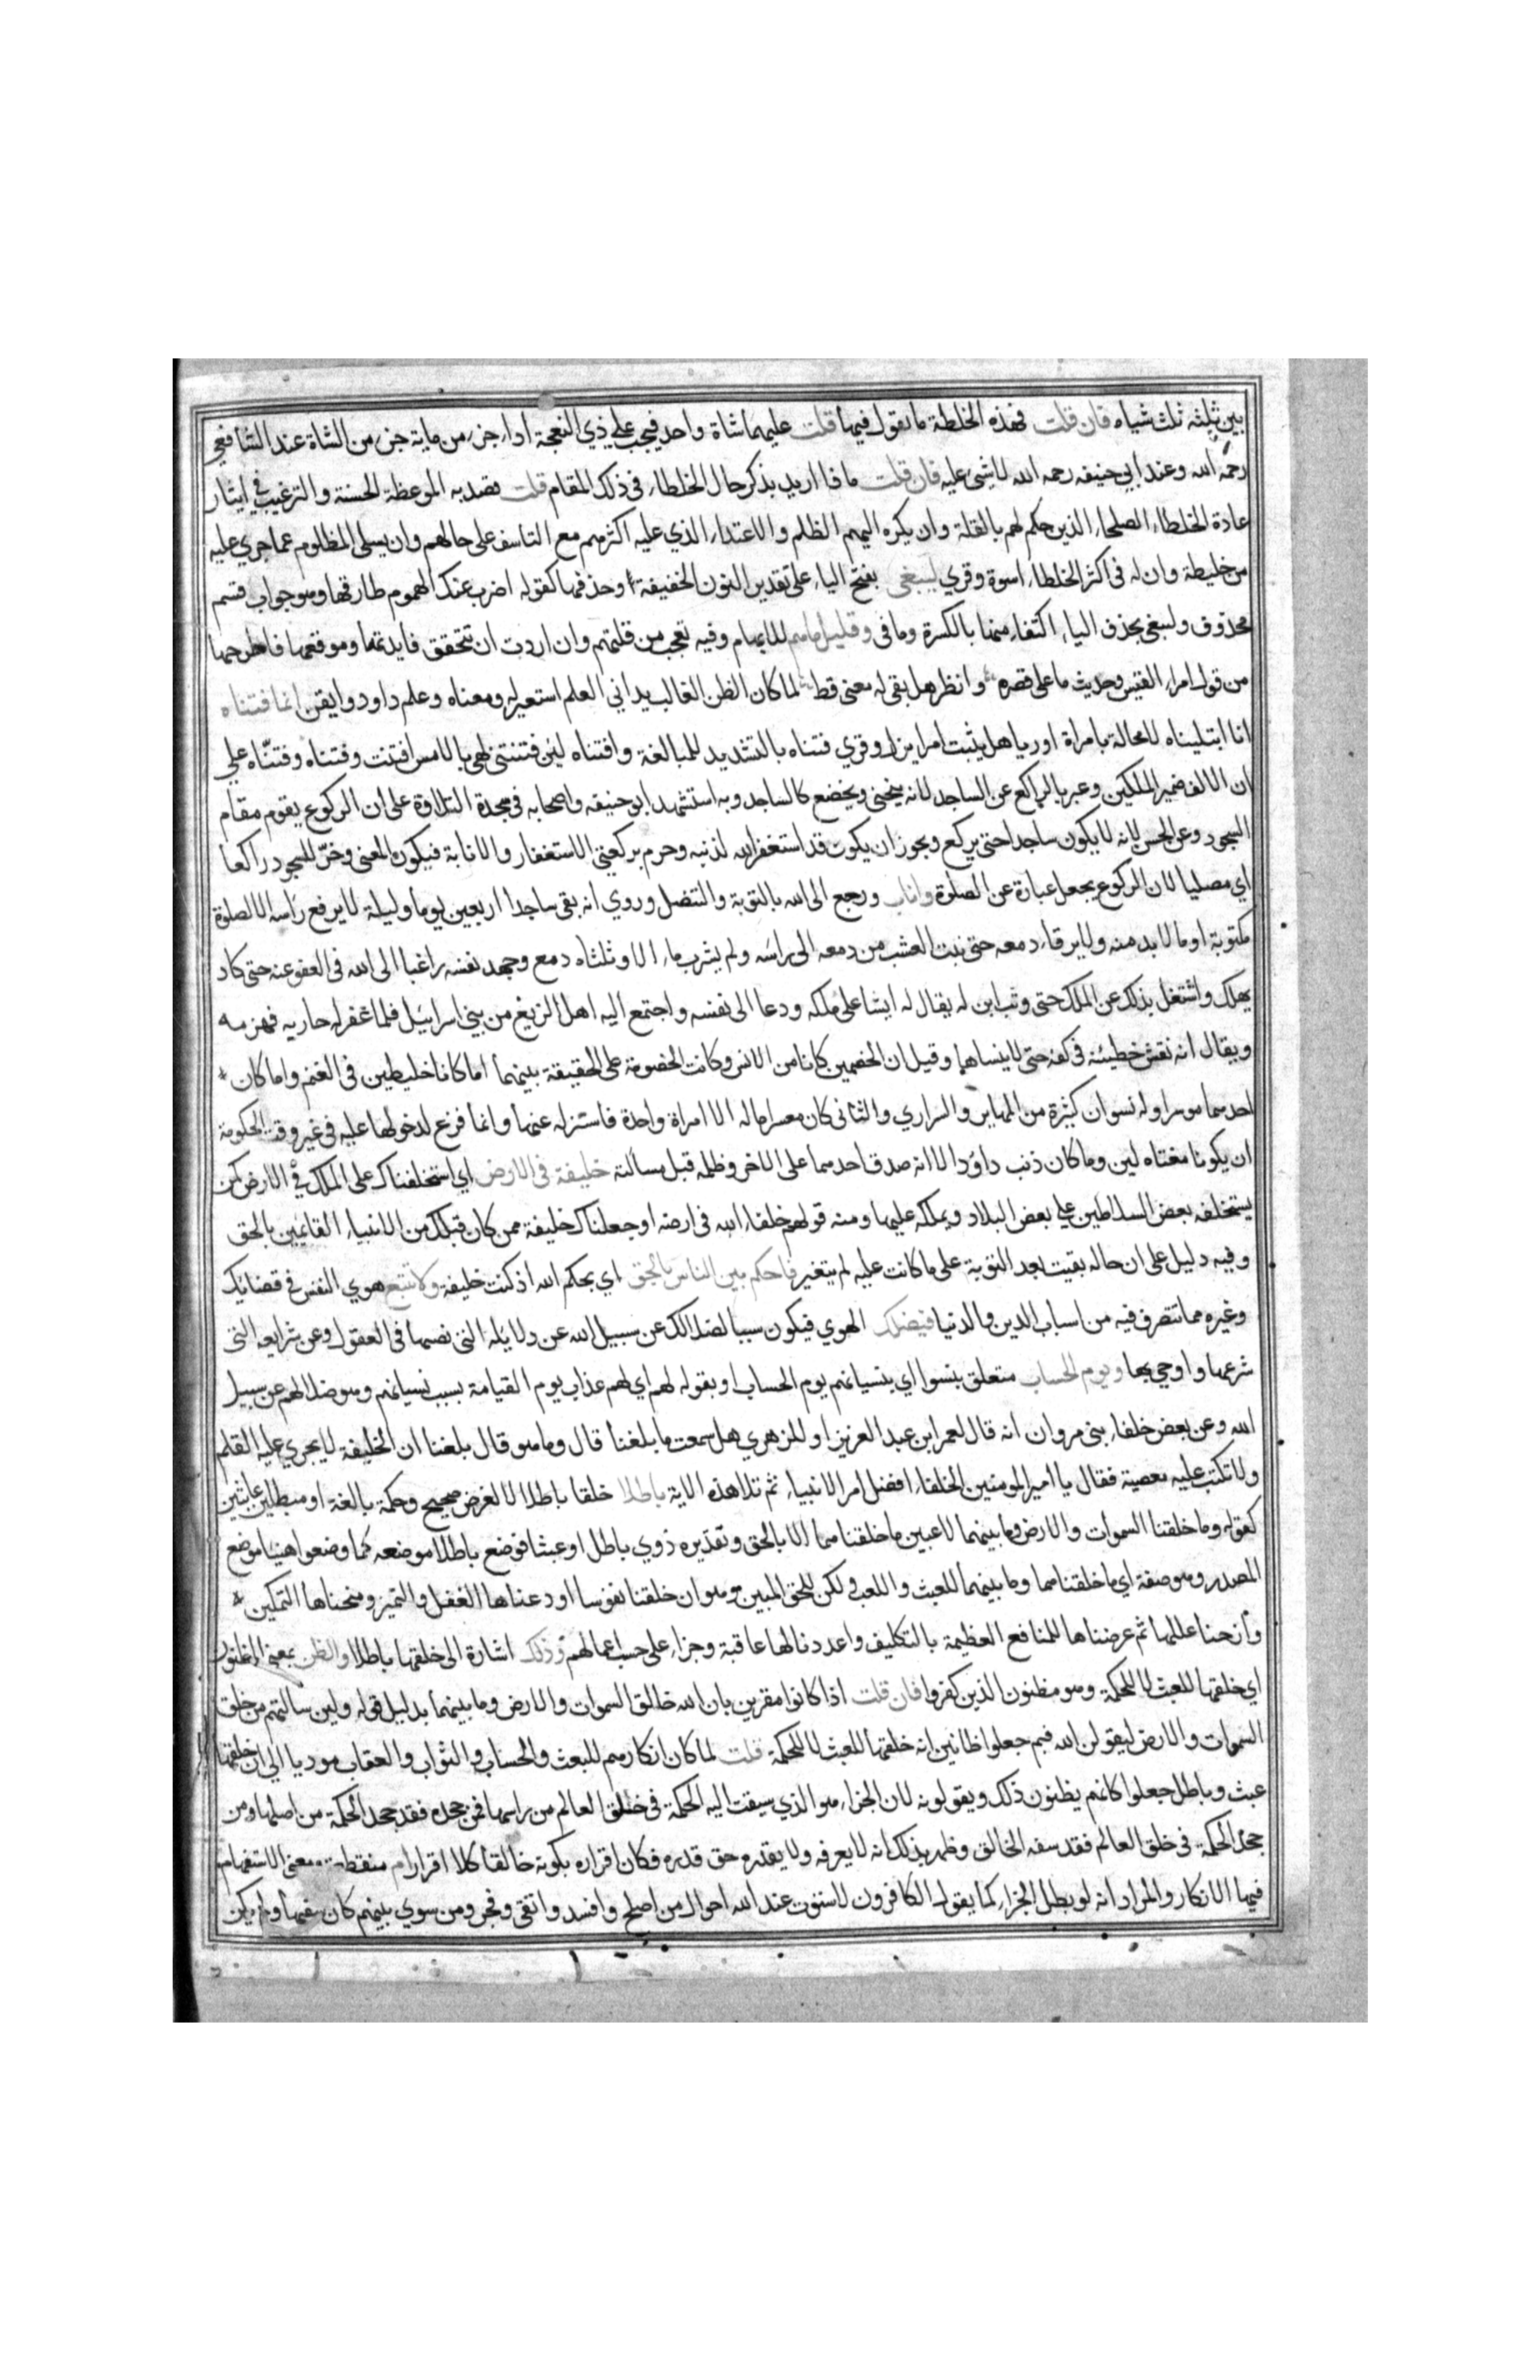 بين ثلثه ثلث شياه فان قلت فهذه الخلطة ما تقول فيها قلت عليهما شاة واحد فيجب علي ذي النعجة ادا جزء من ماية جزء من الشاة عند الشافعي
رحمه الله وعند ابي حنيفه رحمه الله لا شيء عليه فان قلت ما ذا اريد بذكر حال الخلطاء في ذلك المقام قلت قصد به الموعظة الحسنة والترغيب في ايثار
عادة الخلطاء الصلحاء الذين حكم لهم بالقلة وان يكره اليهم الظلم والاعتداء الذي عليه اكثرهم مع التاسف على حالهم وان يسلي المظلوم عما جري عليه
من خليطة وان له في اكثر الخلطاء اسوة وقري ليبغي بفتح الياء على تقدير النون الخفيفة وحذفها كقوله اضرب عنك الهموم طارقها وهو جواب قسم
محذوف ولبيغ بحذف الياء اكتفاء منها بالكسرة وما في وقليل ما هم للابهام وفيه تعجب من قلتهم وان اردت ان تتحقق فايدتها وموقعها فاطرحها
من قول امرء القيس وحديث ما على قصره وانظر هل بقي له معنى قط لما كان الظن الغالب يداني العلم استعير له ومعناه وعلم داود وايقن انما فتناه
انا ابتليناه لا محالة بامراة اوريا هل يثبت امر ايزل وقري فتناه بالتشديد للمبالغة وافتناه لئن فتنتني لهي بالامس افتنت وفتناه وفتنّاه علي
ان الالف ضمير الملكين وعبر بالراكع عن الساجد لانه ينحني ويخضع كالساجد وبه استشهد ابو حنيفه واصحابه في سجدة التلاوة على ان الركوع يقوم مقام
السجود وعن الحسن لانه لا يكون ساجدا حتى يركع ويجوز ان يكون قد استغفر الله لذنبه وحرم بركعتي الاستغفار والانابة فيكون المعني وخر للسجود راكعا
اي مصليا لان الركوع يجعل عبارة عن الصلوة واناب ورجع الى الله بالتوبة والتنصل وروي انه بقي ساجدا اربعين يوما وليلة لا يرفع رأسه الا لصلوة
مكتوبة او ما لا بد منه ولا يرقاء دمعه حتى نبت العشب من دمعه الى راسه ولم يشرب ماء الا وثلثاه دمع وجهد نفسه راغبا الى الله في العفو عنه حتى كاد
يهلك واشتغل بذلك عن الملك حتى وثب ابن له يقال له ايشا على ملكه ودعا الى نفسه واجتمع اليه اهل الزيغ من بني اسرائيل فلما غفر له حاربه فهزمه
ويقال انه نقش خطيئته في كفه حتى لا ينساها وقيل ان الخصمين كانا من الانس وكانت الخصومة على الحقيقة بينهما اما كانا خليطين في الغنم واما كان
احدهما موسرا وله نسوان كثيرة من المهاير والسراري والثاني كان معسرا ما له الا امراة واحدة فاستنزله عنها وانما فزع لدخولهما عليه في غير وقت الحكومة
ان يكونا مغتاه لين وما كان ذنب داؤد الا انه صدق احدهما على الاخر وظلمه قبل مسالته خليفة في الارض اي استخلفناك على الملك في الارض كمن
يستخلفه بعض السلاطين علي بعض البلاد ويملكه عليها ومنه قولهم خلفاء الله في ارضه او جعلناك خليفة ممن كان قبلك من الانبياء القايمين بالحق
وفيه دليل على ان حاله بقيت بعد التوبة على ما كانت عليه لم يتغير فاحكم بين الناس بالحق اي بحكم الله اذ كنت خليفة ولا تتبع هوي النفس في قضائك
وغيره مما تتصرف فيه من اسباب الدين والدنيا فيضلك الهوي فيكون سببا لضلالك عن سبيل الله عن دلايله التي نصبها في العقول وعن شرايعه التي
شرعها واوحي بها ويوم الحساب متعلق بنسوا اي بنسيانهم يوم الحساب او بقوله لهم اي لهم عذاب يوم القيامة بسبب نسيانهم وهو ضلالهم عن سبيل
الله وعن بعض خلفاء بني مروان انه قال لعمر ابن عبد العزيز او للزهري هل سمعت ما بلغنا قال وما هو قال بلغنا ان الخليفة لا يجري عليه القلم
ولا تكتب عليه معصية فقال يا امير المومنين الخلفاء افضل ام الانبياء ثم تلا هذه الاية باطلا خلقا باطلا الا لغرض صحيح وحكمة بالغة او مبطلين عابثين
كقوله وما خلقنا السموات والارض وما بينهما لاعبين ما خلقناهما الا بالحق وتقديره ذوي باطل او عبثا فوضع باطلا موضعه كما وضعوا هنيئا موضع
المصدر وهو صفة اي ما خلقناهما وما بينهما للعبث واللعب ولكن للحق المبين وهو ان خلقنا نفوسا اودعناها العقل والتميز ومنحناها التمكين
وأزحنا عللها ثم عرضناها للمنافع العظيمة بالتكليف واعددنا لها عاقبة وجزاء على حسب اعمالهم وذلك اشارة الى خلقها باطلا والظن بمعنى المظنون
اي خلقها للعبث لا للحكمة وهو مظنون الذين كفروا فان قلت اذا كانوا مقرين بان الله خالق السموات والارض وما بينهما بدليل قوله ولين سالتهم من خلق
السموات والارض ليقولن الله فبم جعلوا ظانين انه خلقها للعبث لا للحكمة قلت لما كان انكارهم للبعث والحساب والثواب والعقاب موديا الى ان خلقها
عبث وباطل جعلوا كانهم يظنون ذلك ويقولونه لان الجزاء هو الذي سيقت اليه الحكمة في خلق العالم من راسها فمن جحده فقد جحد الحكمة من اصلها ومن
جحد الحكمة في خلق العالم فقد سفه الخالق وظهر بذلك انه لا يعرفه ولا يقدره حق قدره فكان اقراره بكونه خالقا كلا اقرار ام منقطعة ومعنى الاستفهام
فيها الانكار والمراد انه لو بطل الجزاء كما يقول الكافرون لاستوت عند الله احوال من اصلح وافسد واتقي وفجر ومن سوي بينهم كان سفيها ولم يكن